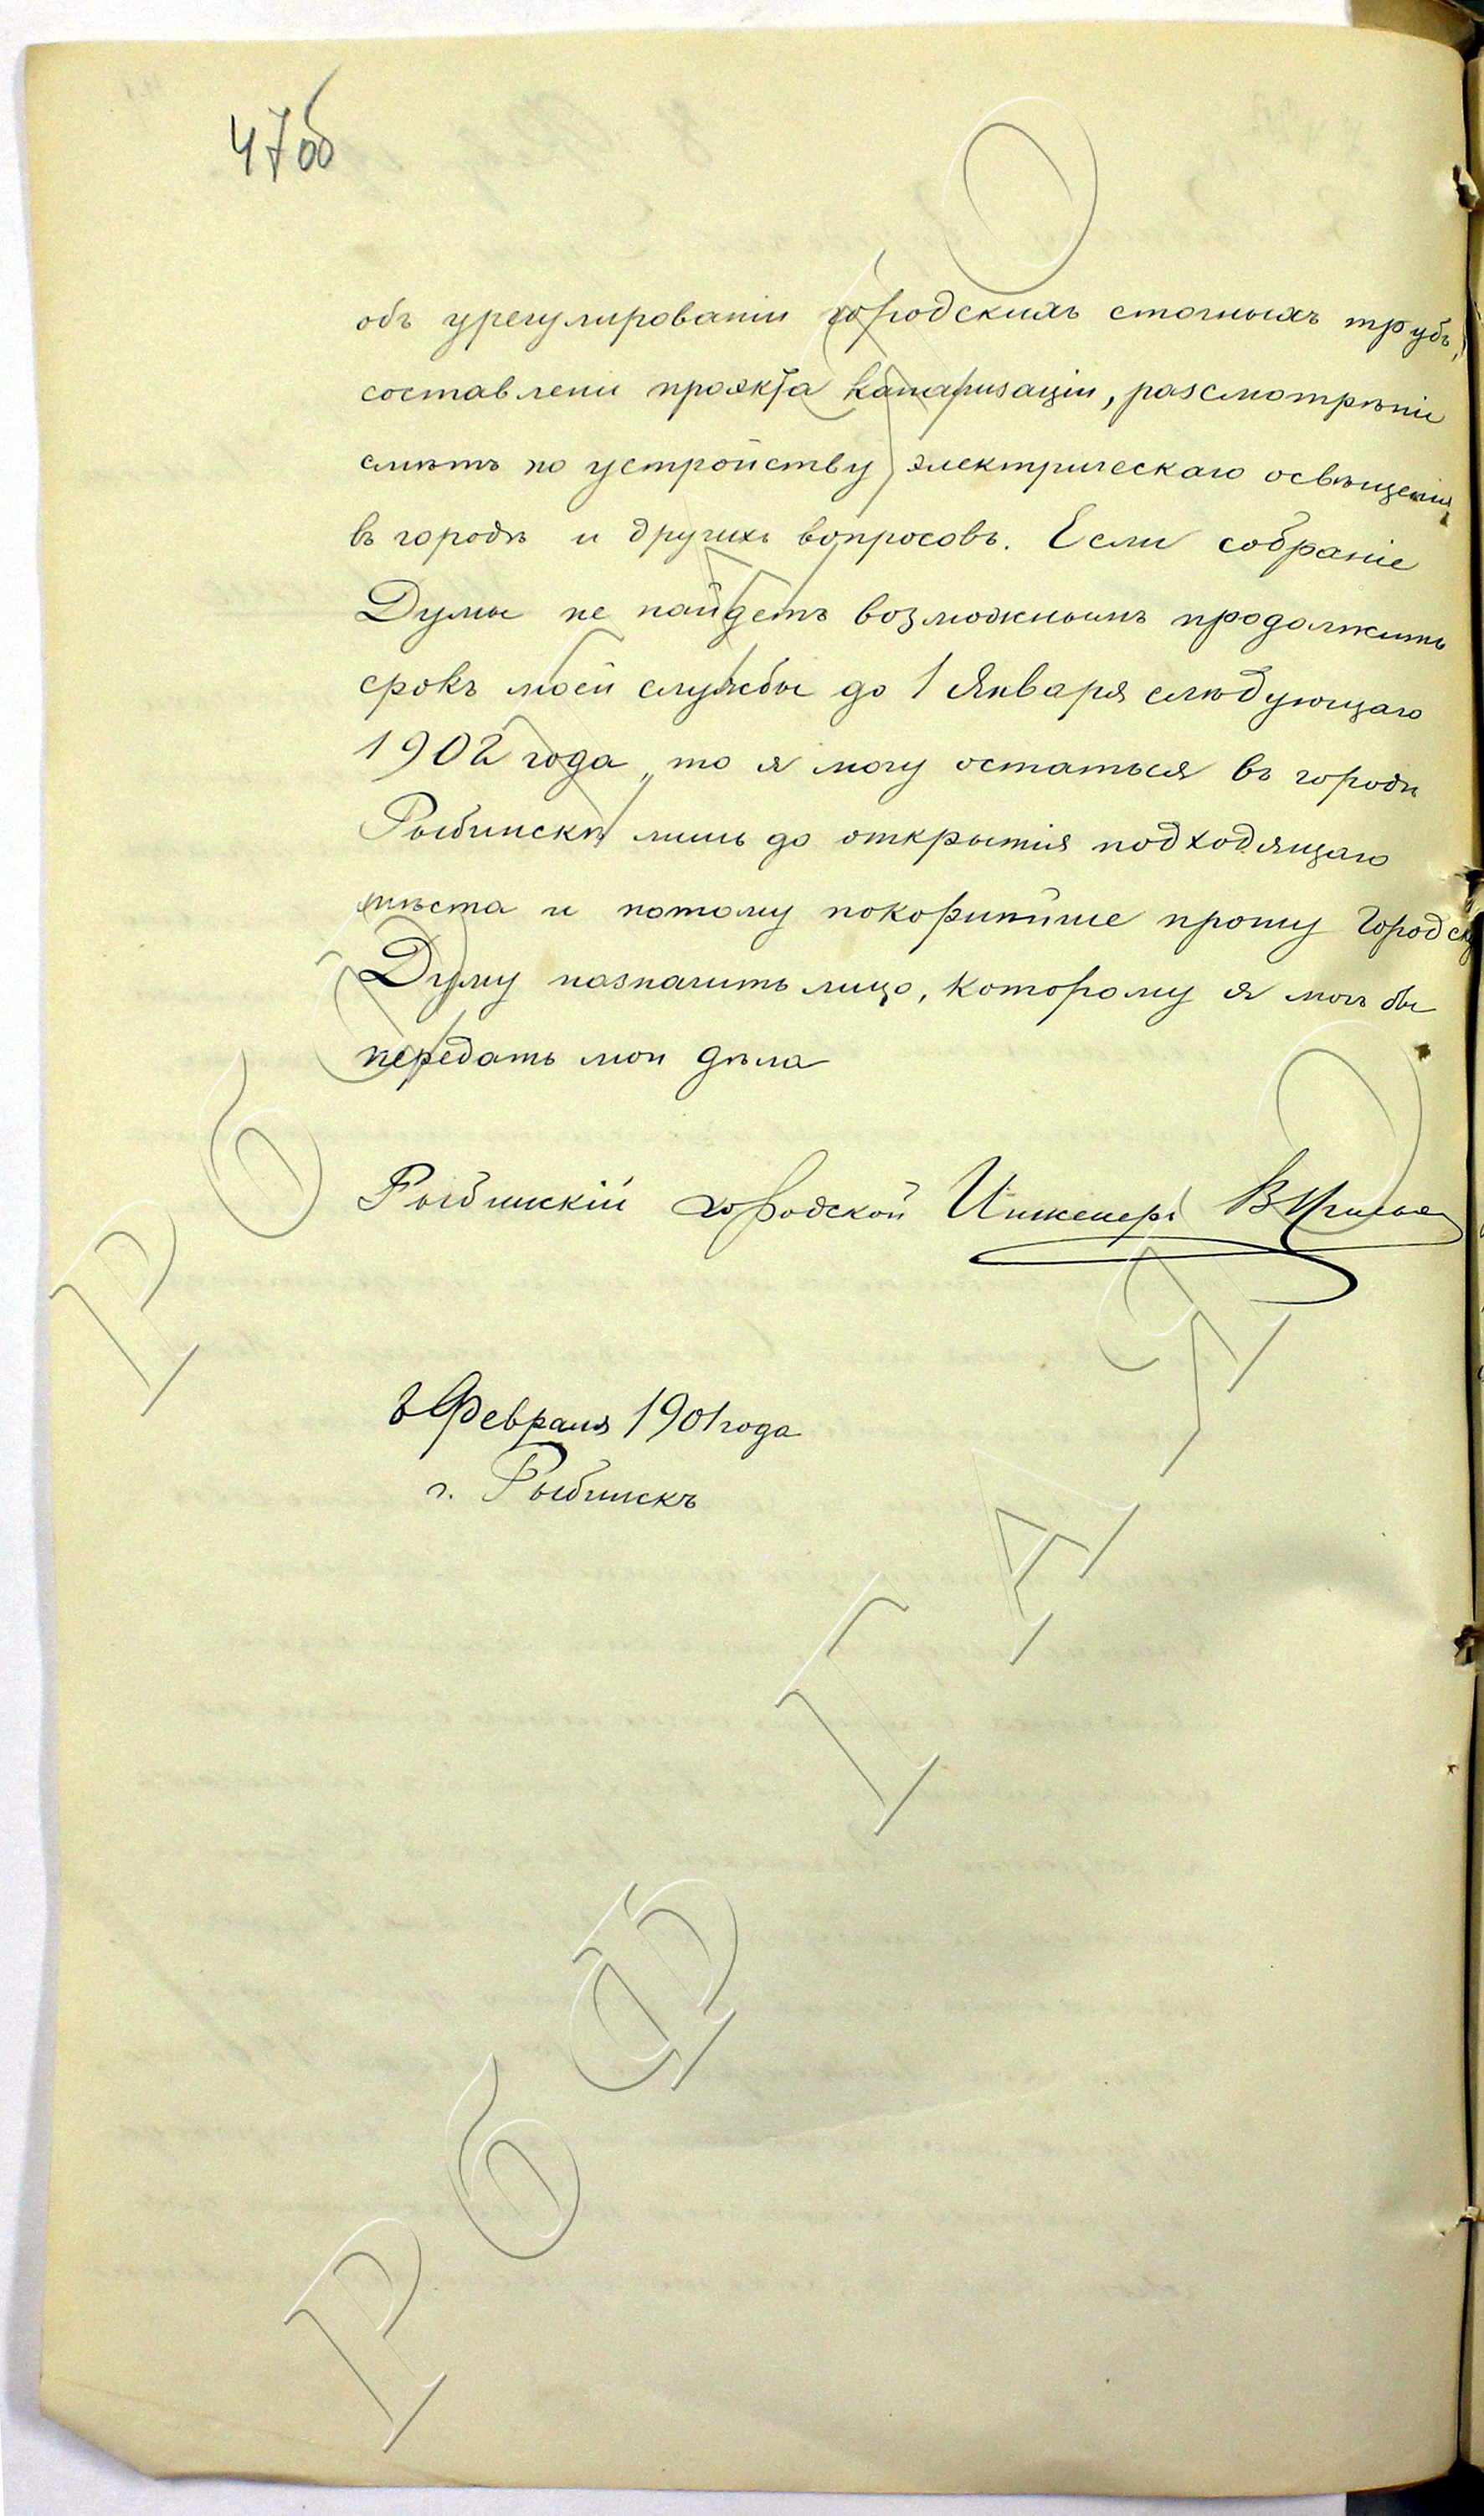 47об
объ урегулированіи городскихъ сточныхъ трубъ,
составлени проэкта канализаціи, разсмотрѣніи
смѣтъ по устройству электрическаго освѣщенія
въ городѣ и другихъ вопросовъ. Если собраніе
Думы не найдетъ возможнымъ продолжить
срокъ моей службы до 1 Января слѣдующаго
1902 года, то я могу остаться въ городѣ
Рыбинскѣ лишь до открытія подходящаго
мѣста и потому покорнѣйше прошу Городск
Думу назначить лицо, которому я могъ бы
передать мои дѣла
Рыбинскій городской Инженеръ В
Февраля 1901 года
г. Рыбинскъ
РбФ ГАЯО
РбФ ГАЯО